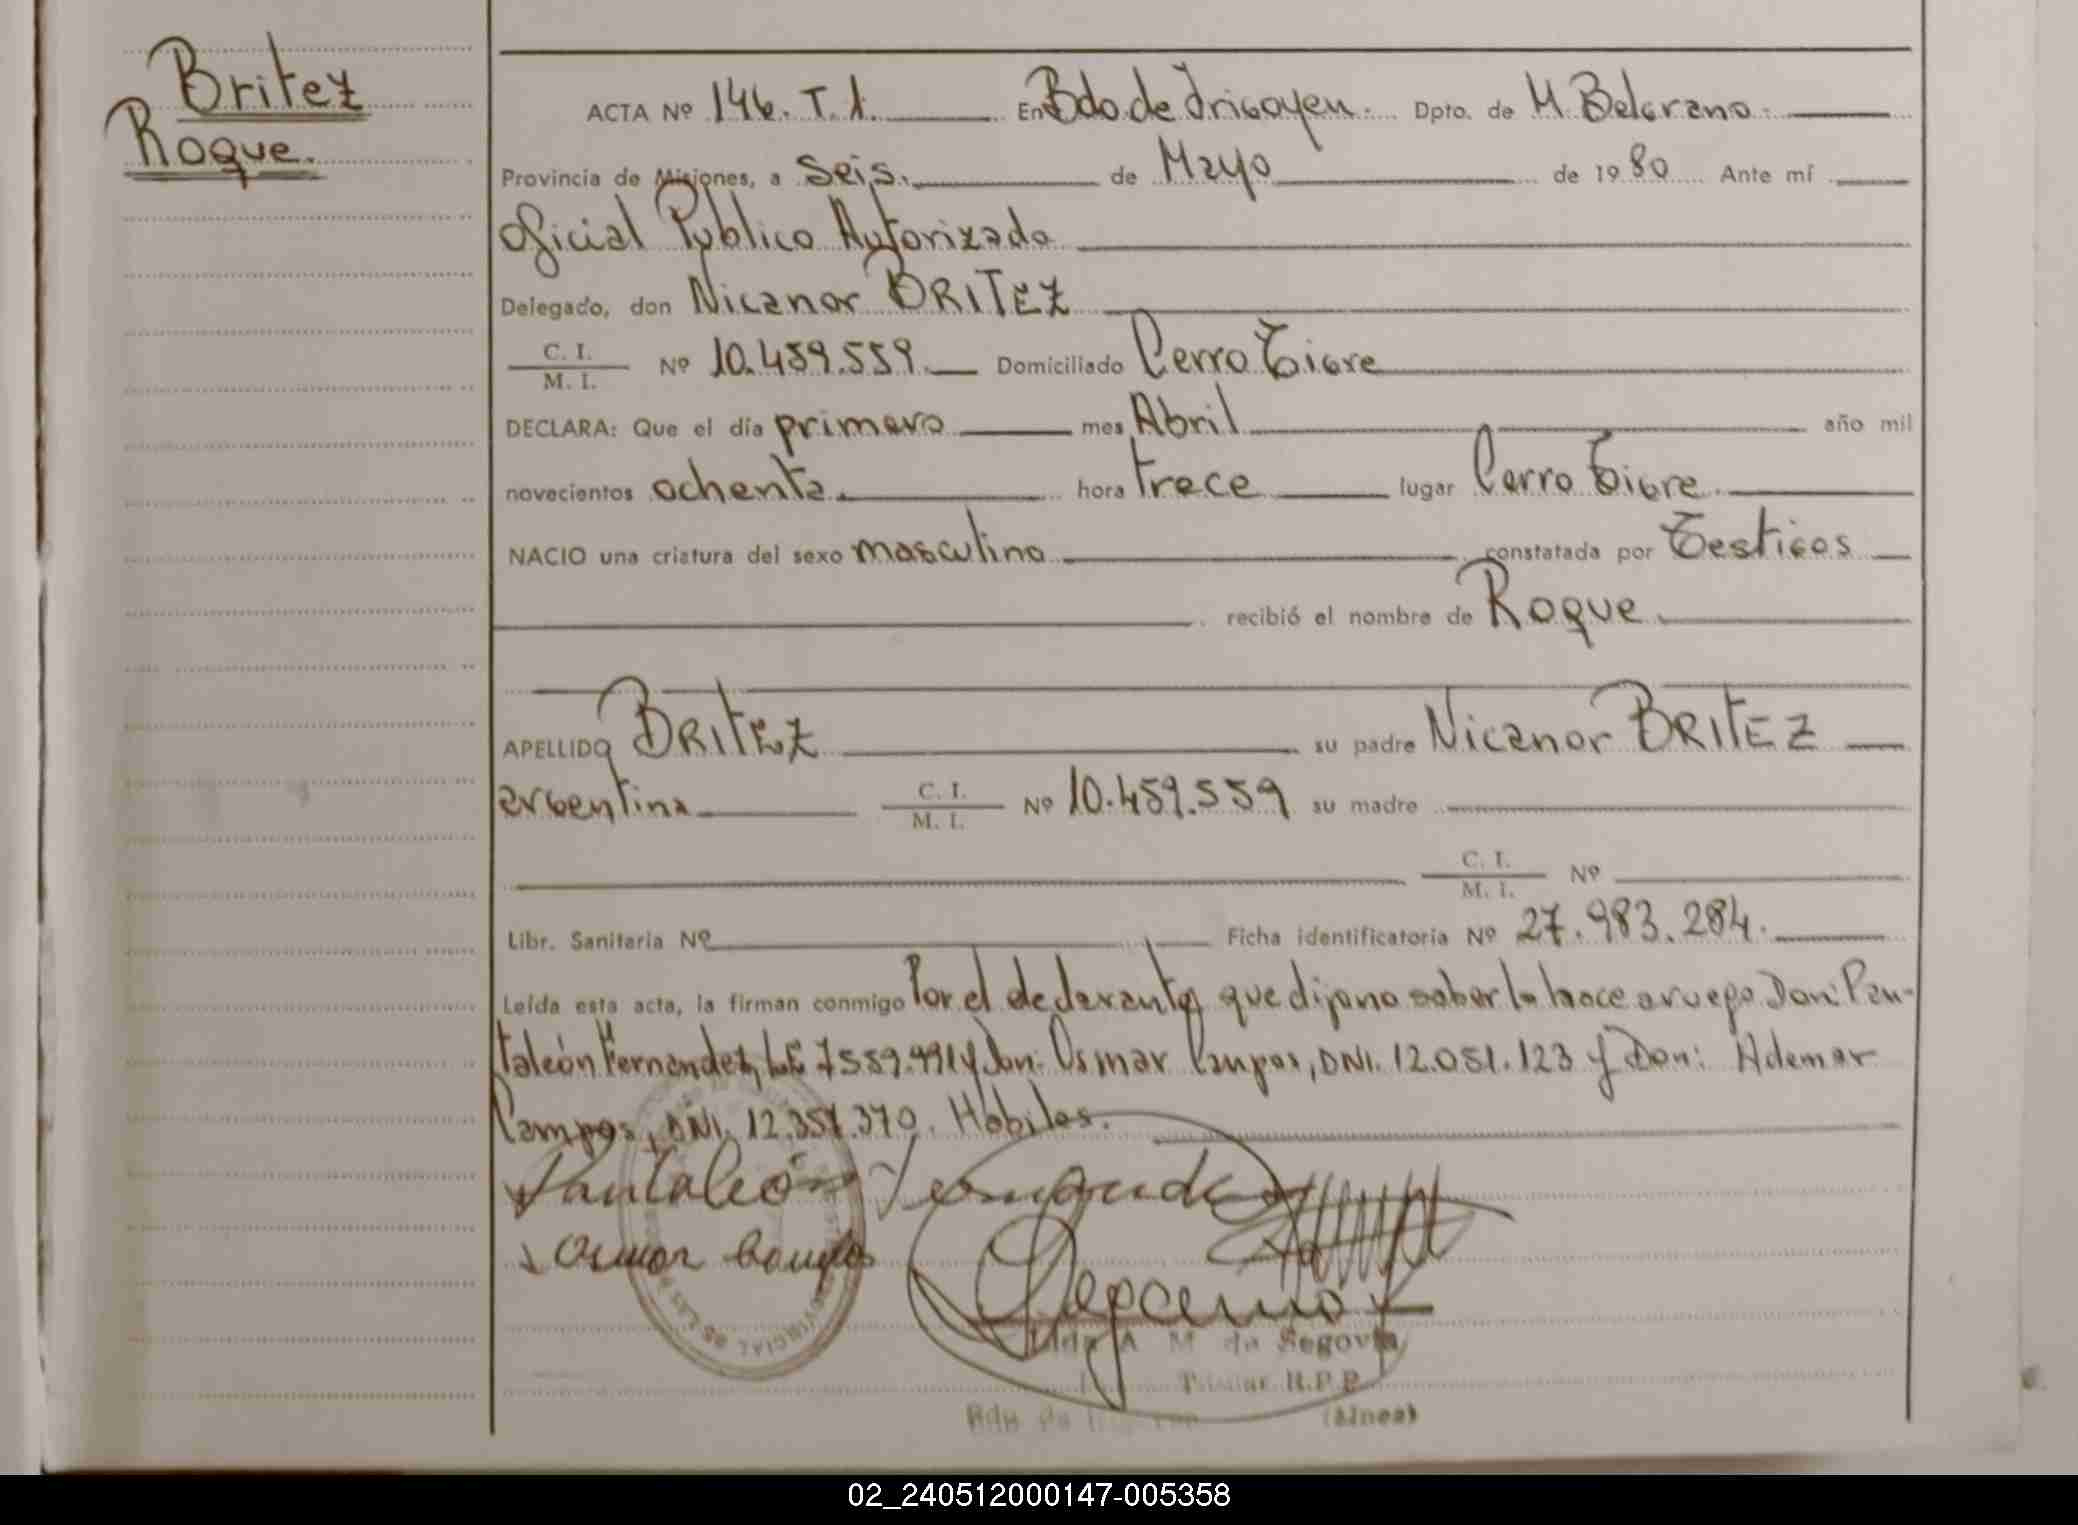 Britez
Roque.
ACTA Nº 146. T. 1. En Bdo. de Irigoyen. Dpto. de M. Belgrano.
Provincia de Misiones, a Seis. de Mayo de 1980 Ante mí
Oficial Publico Autorizado
Delegado, don Nicanor BRITEZ
C. I.
M. I. Nº 10.459.559. Domiciliado Cerro Tigre
DECLARA: Que el día primero mes Abril año mil
novecientos ochenta. hora trece lugar Cerro Tigre.
NACIO una criatura del sexo masculino constatada por Testigos
recibió el nombre de Roque
APELLIDO BRITEZ su padre Nicanor BRITEZ
argentina C. I.
M. I. Nº 10.459.559 su madre
C. I.
M. I. Nº
Libr. Sanitaria Nº Ficha identificatoria Nº 27.983.284.
Leída esta acta, la firman conmigo Por el declarante, que dijo no saber lo hace a ruego Don: Pan-
taleón Fernandez, L.E. 7559.991 y Don: Osmar Campos, DNI. 12.051.123 y Don: Ademar
Campos, DNI. 12.357.370. Hábiles.
Pantaleón Fernandez
Osmar Campos
A M de Segovia
Titular R.P.P
02_240512000147-005358